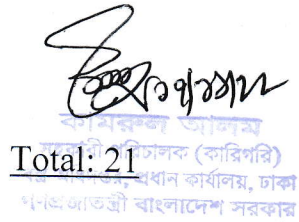 কামরুল আলম
সহকারী পরিচালক (কারিগরি)
Total: 21
প্রধান কার্যালয়, ঢাকা
গণপ্রজাতন্ত্রী বাংলাদেশ সরকার